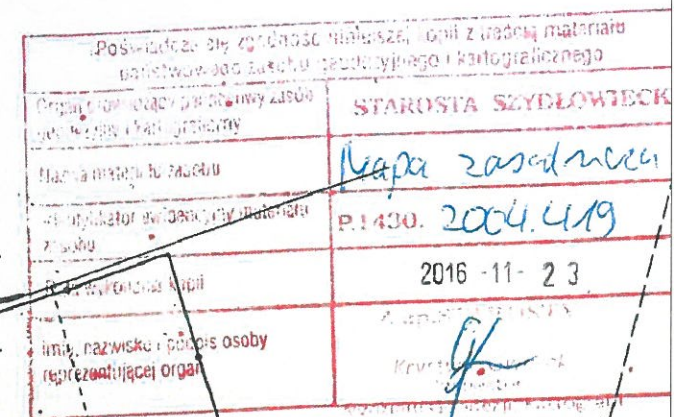 Poświadcza się zgodność niniejszej kopii z treścią materiału
państwowego zasobu geodezyjnego i kartograficznego
Organ prowadzący państwowy zasób
geodezyjny i kartograficzny
STAROSTA SZYDŁOWIECK
Nazwa materiału zasobu
Mapa zasadnicza
Identyfikator ewidencyjny materiału
zasobu
P.1430. 2004.419
Data wykonania kopii
2016 -11- 23
Imię, nazwisko i podpis osoby
reprezentującej organ